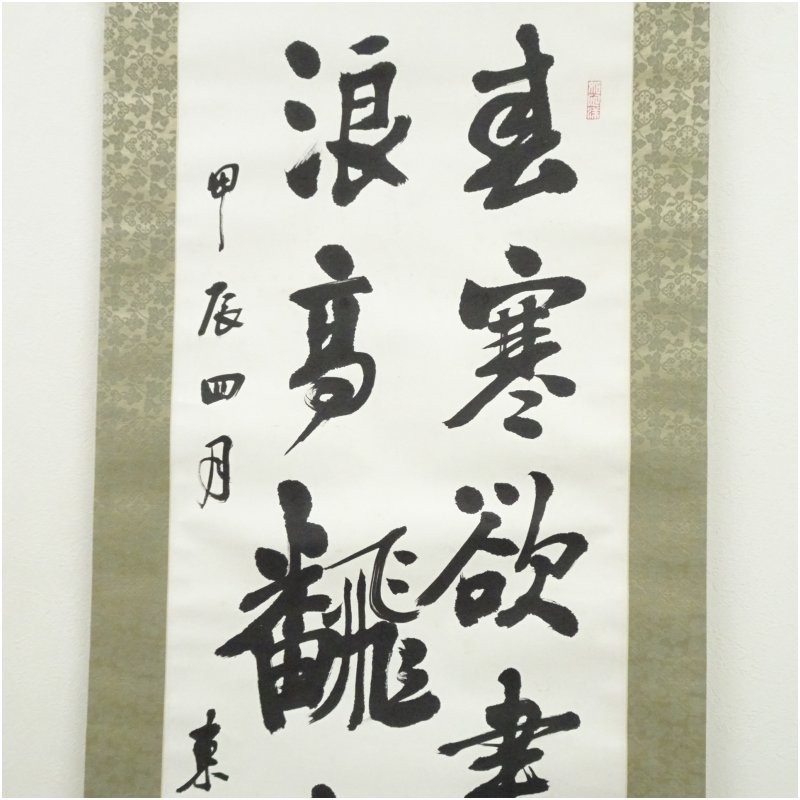 春寒欲
浪高飜
甲辰四月 東